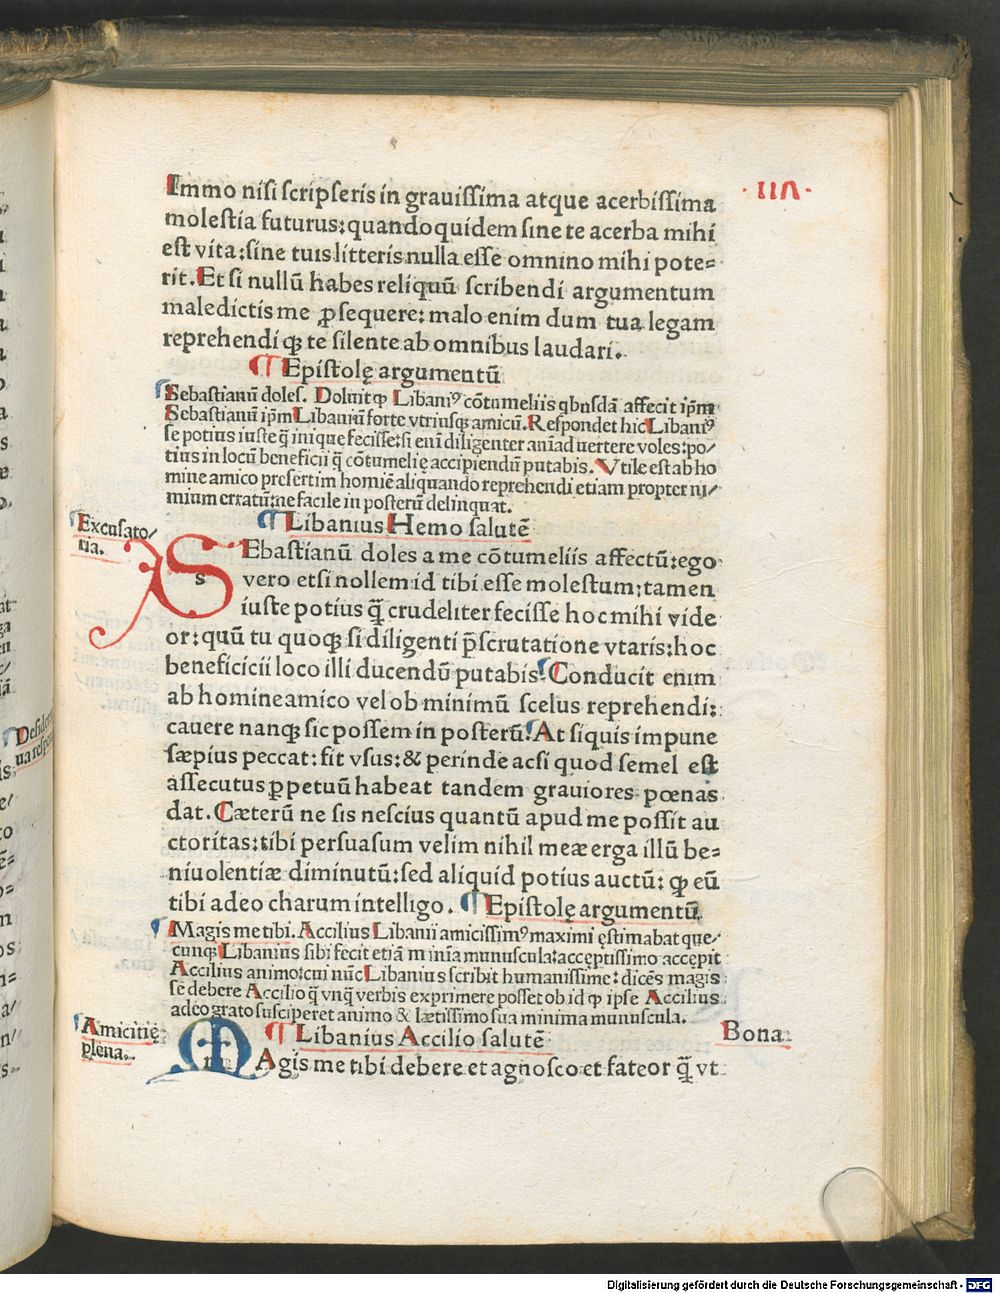 ·IIΛ·
Immo nisi scripseris in grauissima atque acerbissima
molestia futurus: quandoquidem sine te acerba mihi
est vita: sine tuis litteris nulla esse omnino mihi pote=
rit. Et si nullũ habes reliquũ scribendi argumentum
maledictis me ꝓsequere: malo enim dum tua legam
reprehendi ꝙ te silente ab omnibus laudari.
¶ Epistolę argumentũ
Sebastianũ doles. Doluit ꝙ Libaniꝰ cõtumeliis qbusdã affecit ipm
Sebastianũ ipm Libaniũ forte vtriusqꝫ amicũ. Respondet hic Libaniꝰ
se potius iuste q̃ inique fecisse: si eni diligenter aniad uertere voles: po/
tius in locũ beneficii q̃ cõtumelię accipiendũ putabis. Vtile est ab ho
mine amico presertim homiẽ aliquando reprehendi etiam propter ni/
mium erratũ: ne facile in posterũ delinquat.
¶ Libanius Hemo salutẽ
Excusato/
ria.
SEbastianũ doles a me cõtumeliis affectũ: ego
s
vero etsi nollem id tibi esse molestum: tamen
iuste potius q̃ crudeliter fecisse hoc mihi vide
or: quũ tu quoqꝫ si diligenti p̃scrutatione vtaris: hoc
beneficicii loco illi ducendũ putabis. Conducit enim
ab homine amico vel ob minimũ scelus reprehendi:
cauere nanqꝫ sic possem in posterũ. At siquis impune
sæpius peccat: fit vsus: & perinde acsi quod semel est
assecutus ꝑpetuũ habeat tandem grauiores pœnas
dat. Cæterũ ne sis nescius quantũ apud me possit au
ctoritas: tibi persuasum velim nihil meæ erga illũ be=
niuolentiæ diminutũ: sed aliquid potius auctũ: ꝙ eũ
tibi adeo charum intelligo. ¶ Epistolę argumentũ
Magis me tibi. Accilius Libanii amicissimꝰ maximi ęstimabat que/
cunqꝫ Libanius sibi fecit etiã minĩa munuscula: acceptissimo accepit
Accilius animo: cui nũc Libanius scribit humanissime: dicẽs magis
se debere Accilio q̃ vnq̃ verbis exprimere posset ob id ꝙ ipse Accilius
adeo grato susciperet animo & lætissimo sua minima munuscula.
Amicitię
plena.
¶ Libanius Accilio salutẽ
Bona
m
MAgis me tibi debere et agnosco et fateor q̃ vt
Desider
ua respon
Digitalisierung gefördert durch die Deutsche Forschungsgemeinschaft - DFG